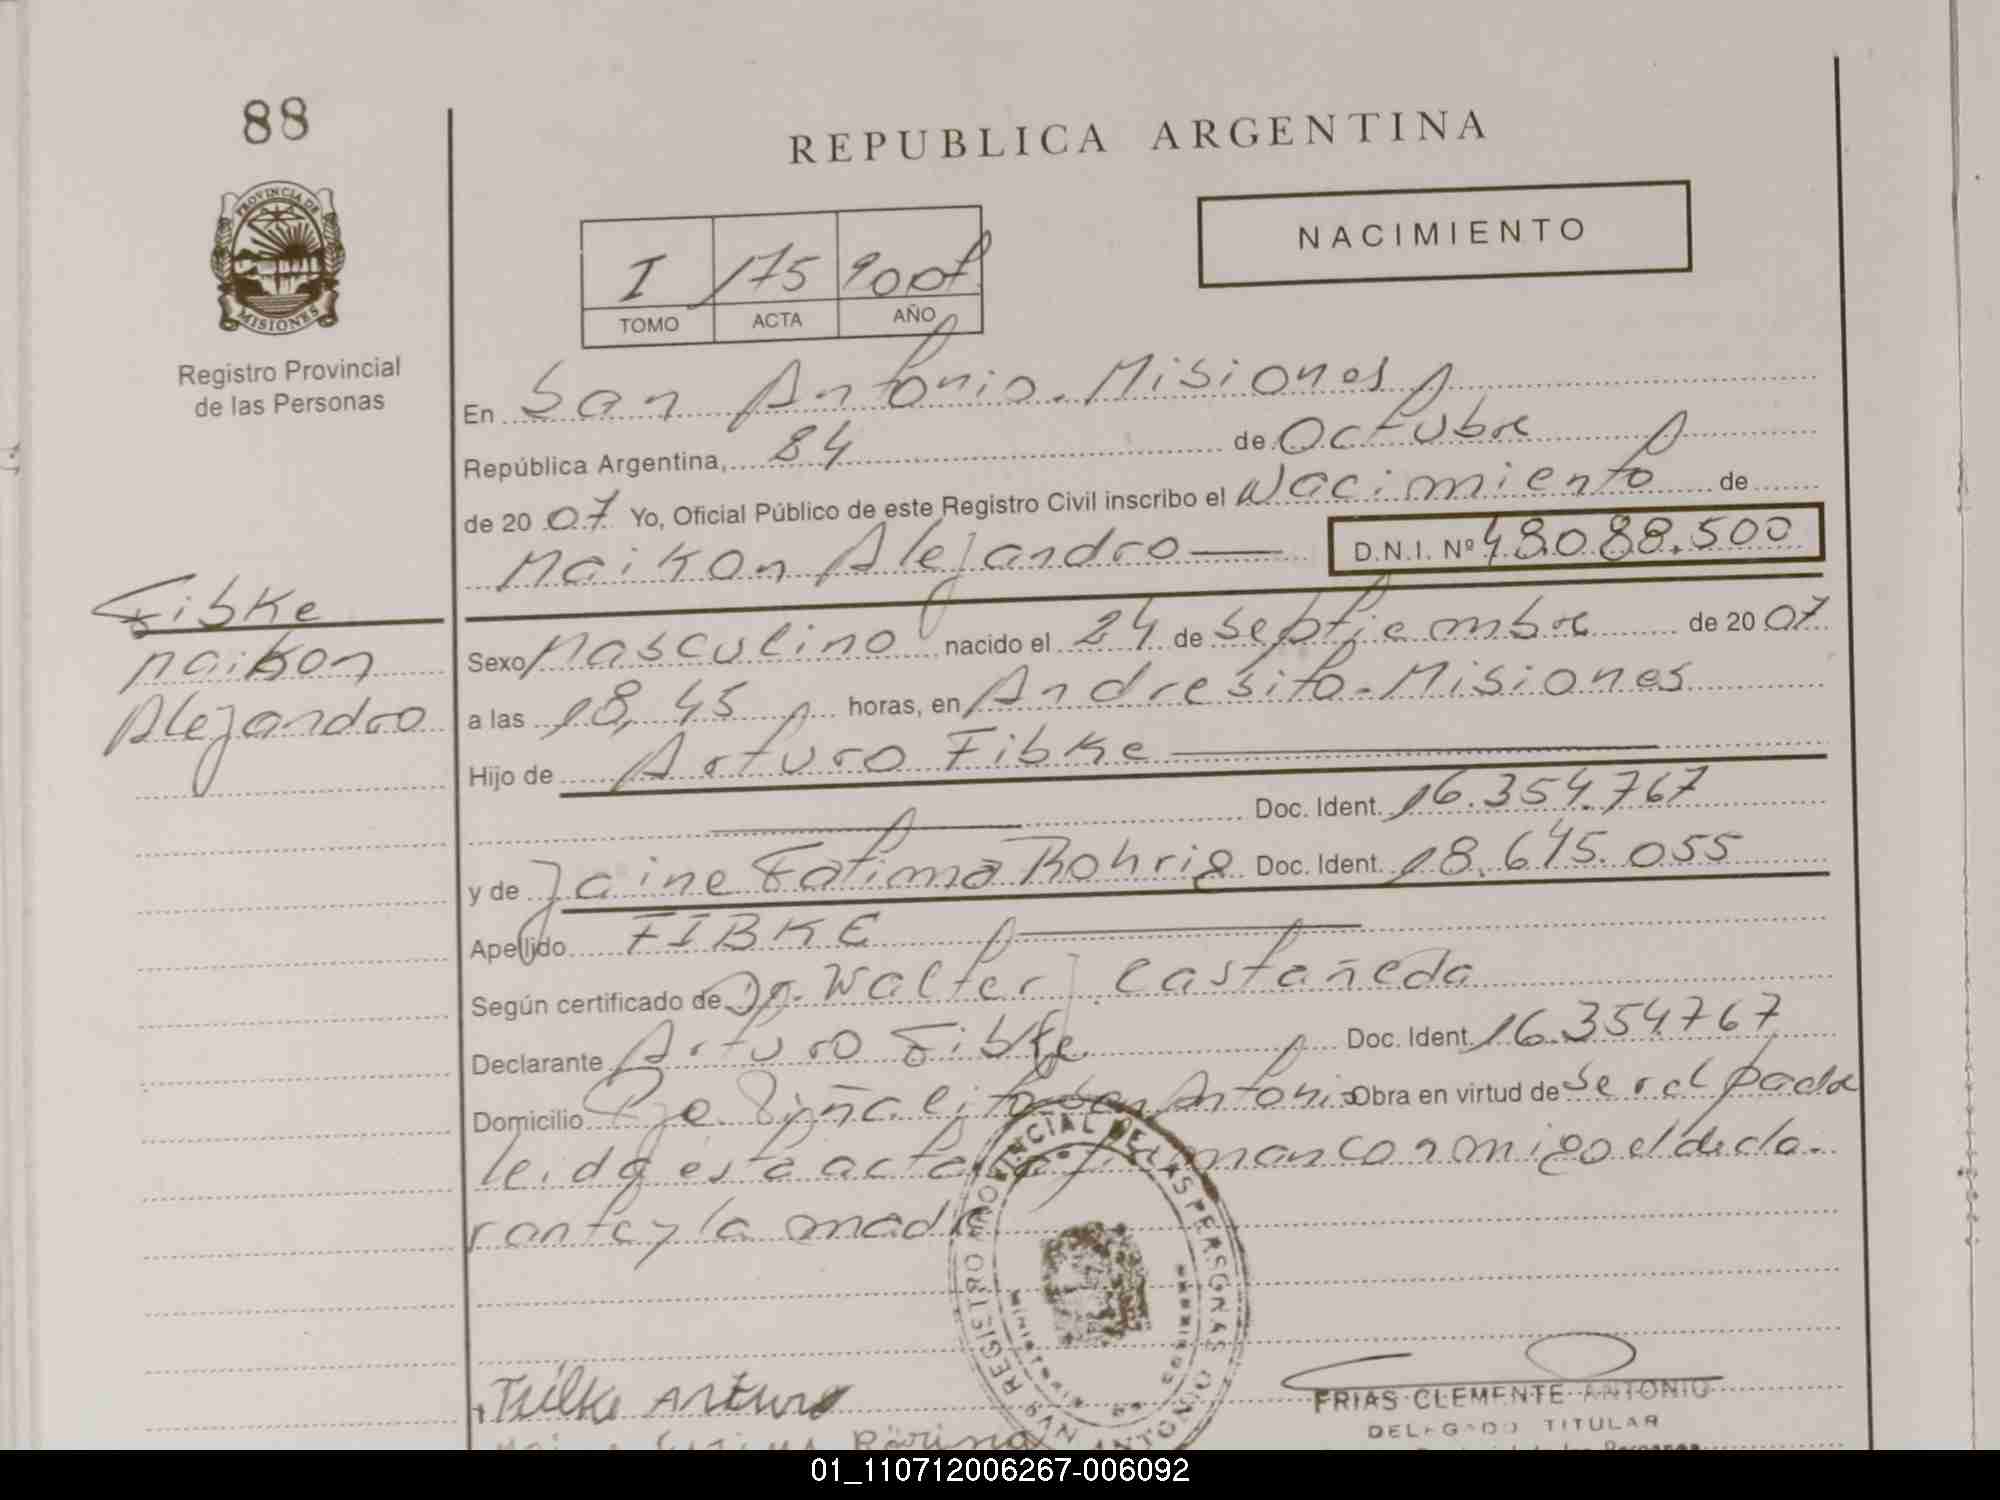 88
REPUBLICA ARGENTINA
PROVINCIA DE
MISIONES
NACIMIENTO
I 175 2007
TOMO ACTA AÑO
Registro Provincial
de las Personas
En San Antonio. Misiones
República Argentina, 24 de Octubre
de 20 07 Yo, Oficial Público de este Registro Civil inscribo el Nacimiento de
Maikon Alejandro D.N.I. Nº 48.088.500
Fibke
Maikon
Alejandro
Sexo Masculino nacido el 24 de Septiembre de 20 07
a las 18,45 horas, en Andresito. Misiones
Hijo de Arturo Fibke
Doc. Ident. 16.354.767
y de Jaine Fatima Rohrig Doc. Ident. 18.645.055
Apellido FIBKE
Según certificado de Dr. Walter J. Castañeda
Declarante Arturo Fibke Doc. Ident. 16.354.767
Domicilio Pje. Piñalito San Antonio Obra en virtud de ser el padre
leida esta acta la firman conmigo el decla-
rante y la madre
REGISTRO PROVINCIAL DE LAS PERSONAS
SAN ANTONIO
Arturo
FRIAS CLEMENTE ANTONIO
DELEGADO TITULAR
01_110712006267-006092